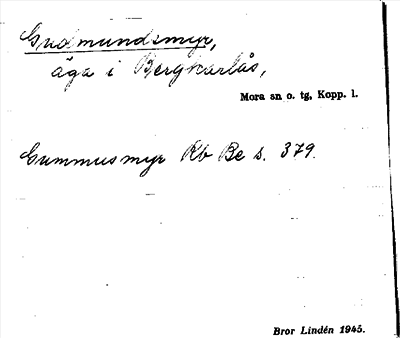 Gudmundsmyr,
äga i Bergkarlås,
Mora sn o. tg, Kopp. l.
Gummusmyr Kb Be s. 379.
Bror Lindén 1945.